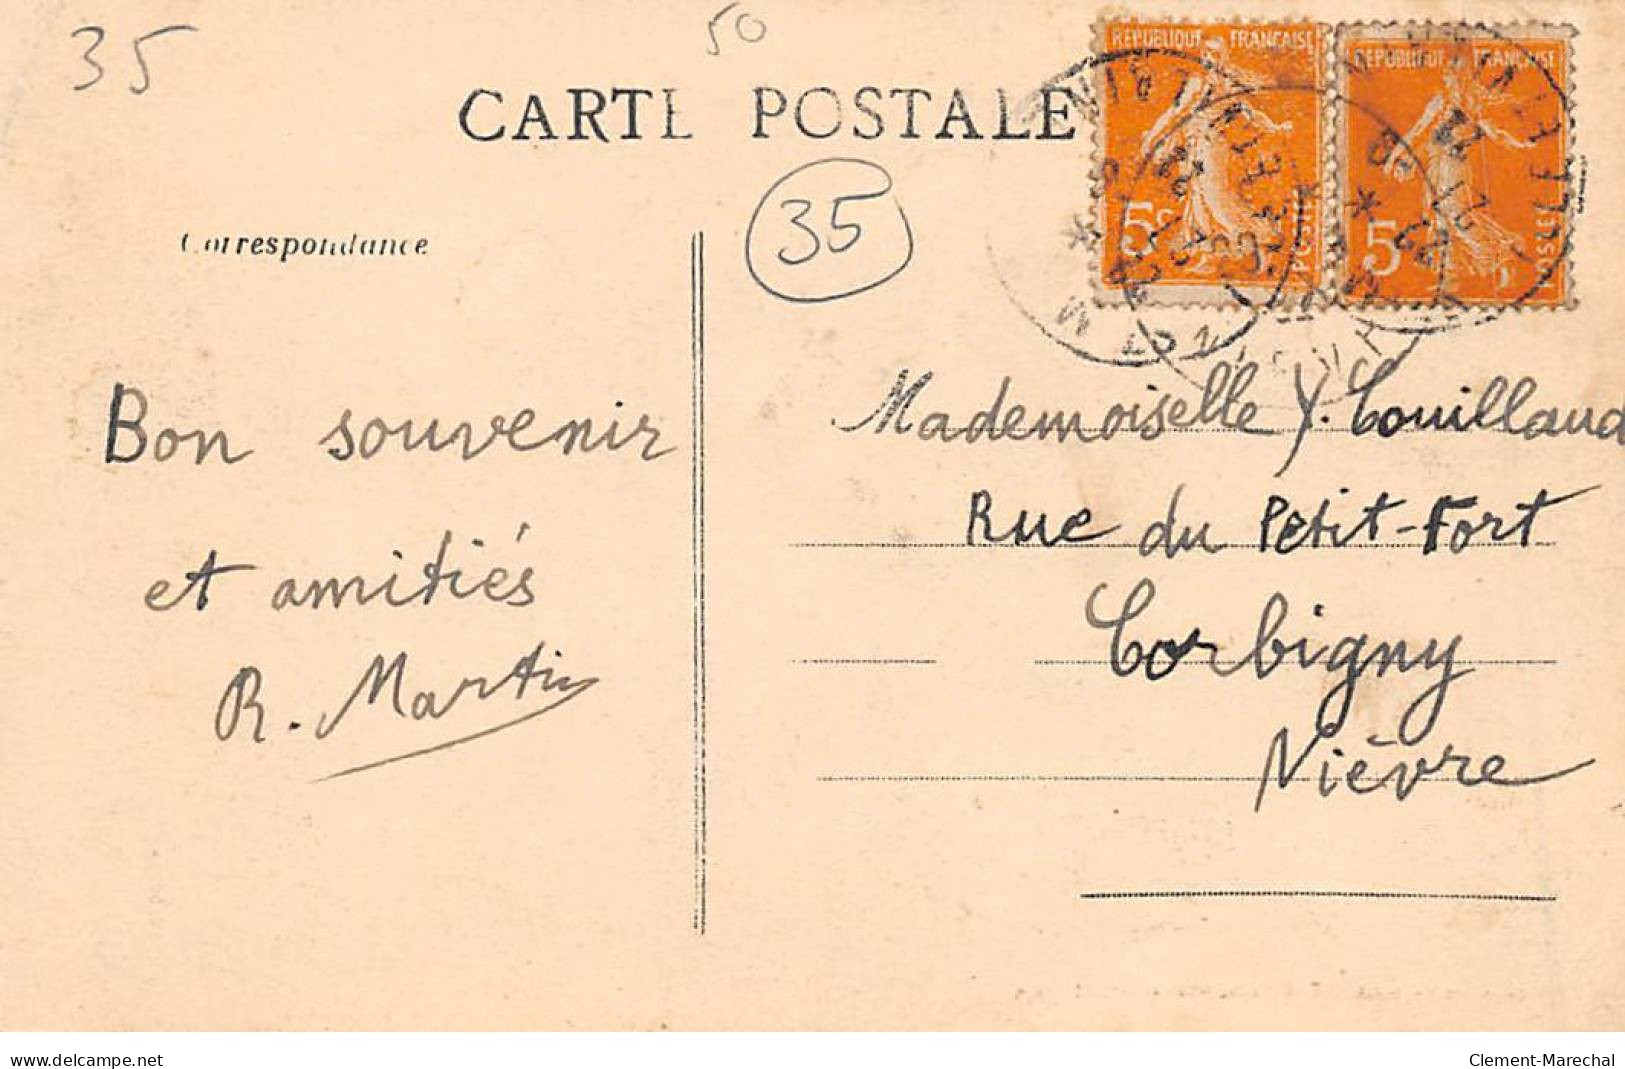 35
50
CARTE POSTALE
35
Correspondance
RÉPUBLIQUE FRANÇAISE
5c
POSTES
RÉPUBLIQUE FRANÇAISE
5c
POSTES
Bon souvenir
et amitiés
R. Martin
Mademoiselle Y. Couillaud
Rue du Petit-Fort
Corbigny
Nièvre
www.delcampe.net
Clement-Marechal